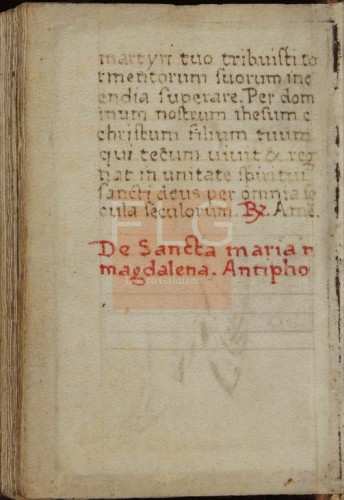 martyri tuo tribuisti to
rmentorum suorum inc
endia superare. Per dom
inum nostrum ihesum c
christum filium tuum
qui tecum uiuit & reg
nat in unitate spiritui
sancti deus per omnia se
cula seculorum. R. Ame.
De Sancta maria
magdalena. Antipho
FLG